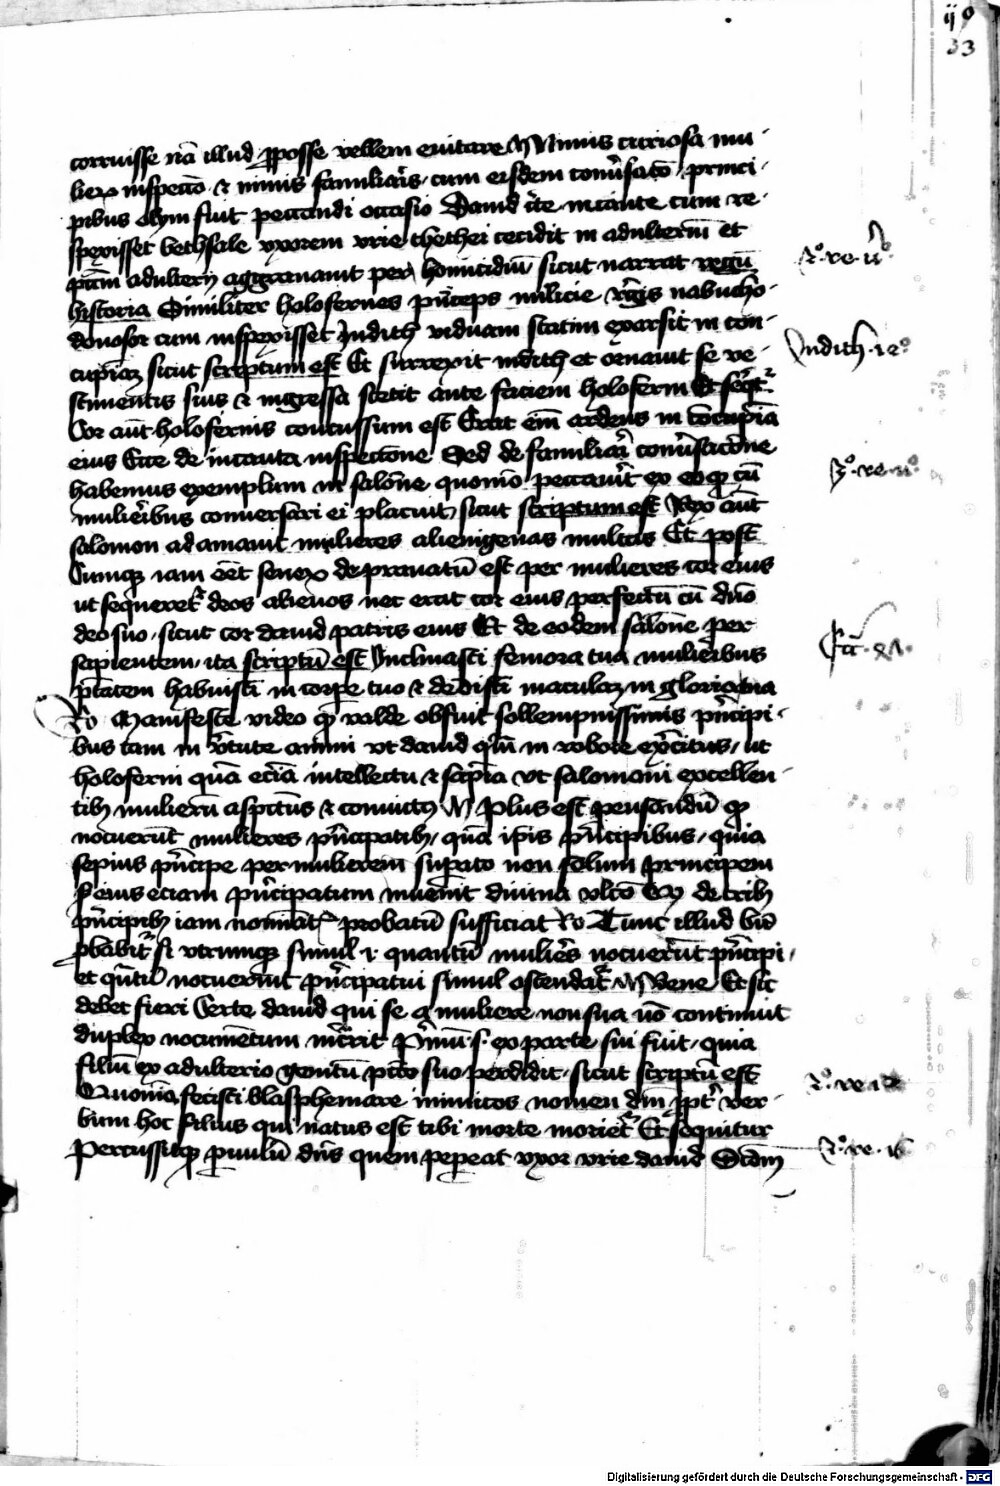 ijº
33
corruisse nā illud ꝓposse vellem euitare M Nimis curiosa mu-
lierꝫ inspectō ⁊ nimis familiar̄is cum eisdem conu̓satō princi-
pibus olym fuit peccandi occasio Dauid c̓te incaute cum re-
spexisset bethsale vxorem vrie ethei cecidit in adulteriū et
pctm̄ adulterij aggrauauit per homicidiū sicut narrat regū
historia Similiter holofernes pn̄ceps milicie r̓gis nabucho-
donosor cum inspexisset Judith viduam statim exarsit in con-
cupiaꝫ sicut scriptum est Et surrexit iudith et ornauit se ve-
stimentis suis ⁊ ingressa stetit ante faciem holoferni Et seq̄t̓
Cor aūt holofernis concussum est Erat eīm ardens in cōcupīa
eius Ecce de incauta inspectione Sed de familiar̄i conu̓sacōne
habemus exemplum in salōne quomō peccau̓it ex eo qꝫ cū
mulieribus conuersari ei placuit sicut scriptum est Rex aūt
salomon adamauit mulieres alienigenas multas Et post
Cumqꝫ iam eēt senex deprauatū est per mulieres cor eius
ut sequeret̓ deos alienos nec erat cor eius perfectū cū dn̄o
deo suo sicut cor dauid patris eius Et de eodem salōne per
sapientem ita scriptū est Inclinasti femora tua mulieribus
ptātem habuisti in corpe tuo ⁊ dedisti maculaꝫ in gloria tua
Rō Manifeste video qꝫ valde obfuit sollempnissimis prīcipi-
bus tam in v̓tute animi vt dauid qm̄ in robore exercitus ut
holoferni quā eciā intellectu ⁊ sapīa vt salomoni excellen-
tibꝫ mulierū aspectus ⁊ conuictꝰ M Plus est pensandū qꝫ
nocuerūt mulieres prīcipatibꝫ quā ip̄is prīcipibus quia
sepius prīcipe per mulierem supato non solum principem
sꝫ eius eciam prīcipatum inuenit diuina vltō Ex de tribꝫ
prīcipibꝫ iam nomīat̓ probatū sufficiat Rō Tunc illud bn̄
ꝓbabit̓ si vtrumqꝫ simul .i. quantū mulieres nocuer̄ut prīcipi
et qn̄tū nocuerunt prīcipatui simul ostendat̓ M Bene Et sic
debet fieri Certe dauid qui se a muliere non sua nō continuit
duplex nocumētum incurrit Prīmū .s. ex parte sui fuit quia
filiū ex adulterio genitū pctō suo perdidit sicut scriptū est
Quoniā fecisti blasphemare inimicos nomen dn̄i ꝓpt̓ ver-
bum hoc filius qui natus est tibi morte moriet̓ Et sequitur
Percussitqꝫ paruulū dn̄s quem pepeat vxor vrie dauid Scd̄m
2º re 11º
Judith 10º
3º re 11º
Ecc̄ 47
2º re 12
2º re 16
Digitalisierung gefördert durch die Deutsche Forschungsgemeinschaft - DFG